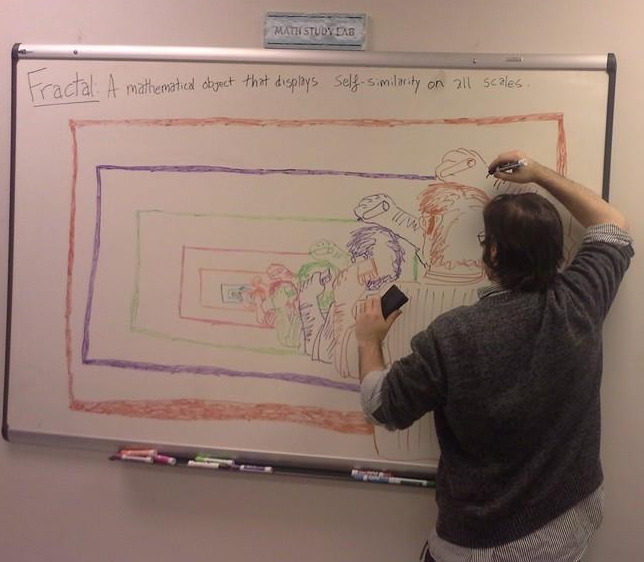 MATH STUDY LAB
Fractal: A mathematical object that displays self-similarity on all scales.